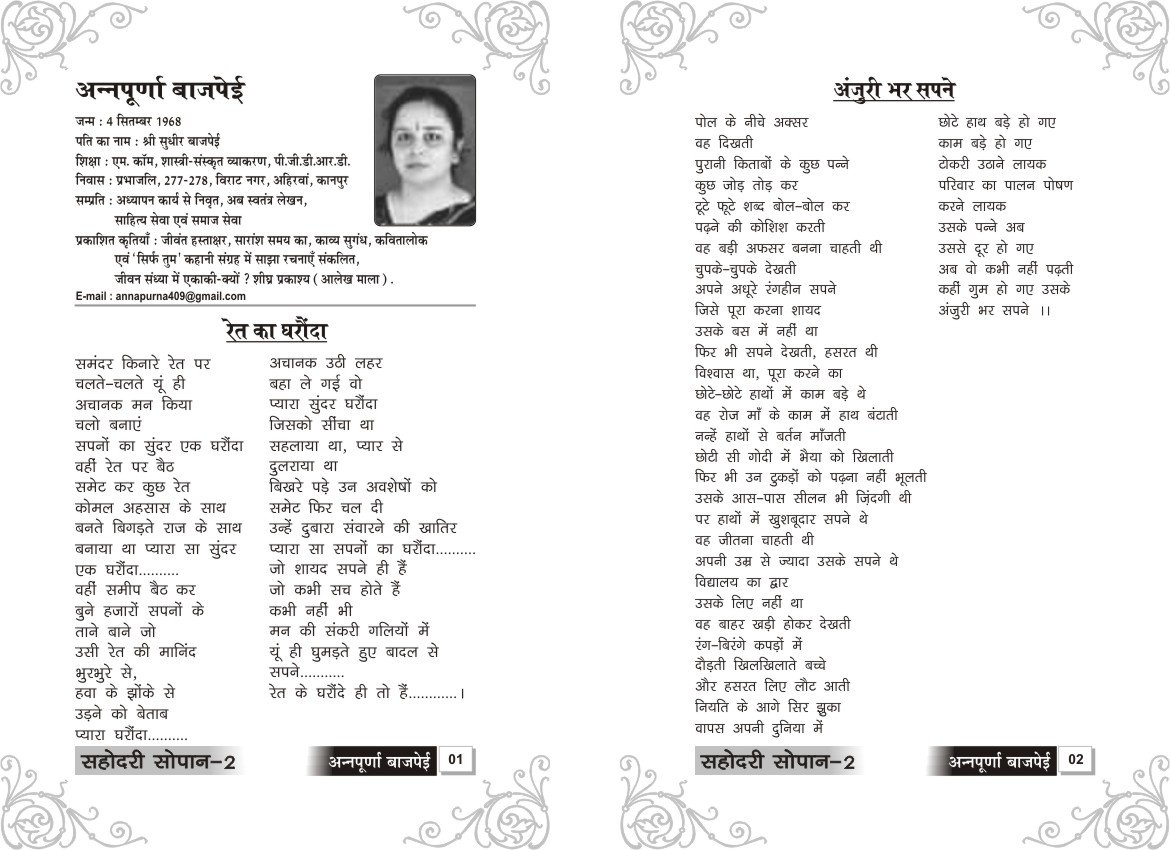 अन्नपूर्णा बाजपेई
जन्म : 4 सितम्बर 1968
पति का नाम : श्री सुधीर बाजपेई
शिक्षा : एम. कॉम, शास्त्री-संस्कृत व्याकरण, पी.जी.डी.आर.डी.
निवास : प्रभाजलि, 277-278, विराट नगर, अहिरवां, कानपुर
सम्प्रति : अध्यापन कार्य से निवृत, अब स्वतंत्र लेखन,
साहित्य सेवा एवं समाज सेवा
प्रकाशित कृतियाँ : जीवंत हस्ताक्षर, सारांश समय का, काव्य सुगंध, कवितालोक
एवं ‘सिर्फ तुम’ कहानी संग्रह में साझा रचनाएँ संकलित,
जीवन संध्या में एकाकी-क्यों ? शीघ्र प्रकाश्य ( आलेख माला ) .
E-mail : annapurna409@gmail.com
रेत का घरौंदा
समंदर किनारे रेत पर
चलते-चलते यूं ही
अचानक मन किया
चलो बनाएं
सपनों का सुंदर एक घरौंदा
वहीं रेत पर बैठ
समेट कर कुछ रेत
कोमल अहसास के साथ
बनते बिगड़ते राज के साथ
बनाया था प्यारा सा सुंदर
एक घरौंदा..........
वहीं समीप बैठ कर
बुने हजारों सपनों के
ताने बाने जो
उसी रेत की मानिंद
भुरभुरे से,
हवा के झोंके से
उड़ने को बेताब
प्यारा घरौंदा..........
अचानक उठी लहर
बहा ले गई वो
प्यारा सुंदर घरौंदा
जिसको सींचा था
सहलाया था, प्यार से
दुलराया था
बिखरे पड़े उन अवशेषों को
समेट फिर चल दी
उन्हें दुबारा संवारने की खातिर
प्यारा सा सपनों का घरौंदा..........
जो शायद सपने ही हैं
जो कभी सच होते हैं
कभी नहीं भी
मन की संकरी गलियों में
यूं ही घुमड़ते हुए बादल से
सपने...........
रेत के घरौंदे ही तो हैं............।
सहोदरी सोपान-2
अन्नपूर्णा बाजपेई 01
अंजुरी भर सपने
पोल के नीचे अक्सर
वह दिखती
पुरानी किताबों के कुछ पन्ने
कुछ जोड़ तोड़ कर
टूटे फूटे शब्द बोल-बोल कर
पढ़ने की कोशिश करती
वह बड़ी अफसर बनना चाहती थी
चुपके-चुपके देखती
अपने अधूरे रंगहीन सपने
जिसे पूरा करना शायद
उसके बस में नहीं था
फिर भी सपने देखती, हसरत थी
विश्वास था, पूरा करने का
छोटे-छोटे हाथों में काम बड़े थे
वह रोज माँ के काम में हाथ बंटाती
नन्हें हाथों से बर्तन माँजती
छोटी सी गोदी में भैया को खिलाती
फिर भी उन टुकड़ों को पढ़ना नहीं भूलती
उसके आस-पास सीलन भी ज़िंदगी थी
पर हाथों में खुशबूदार सपने थे
वह जीतना चाहती थी
अपनी उम्र से ज्यादा उसके सपने थे
विद्यालय का द्वार
उसके लिए नहीं था
वह बाहर खड़ी होकर देखती
रंग-बिरंगे कपड़ों में
दौड़ती खिलखिलाते बच्चे
और हसरत लिए लौट आती
नियति के आगे सिर झुका
वापस अपनी दुनिया में
छोटे हाथ बड़े हो गए
काम बड़े हो गए
टोकरी उठाने लायक
परिवार का पालन पोषण
करने लायक
उसके पन्ने अब
उससे दूर हो गए
अब वो कभी नहीं पढ़ती
कहीं गुम हो गए उसके
अंजुरी भर सपने ।।
सहोदरी सोपान-2
अन्नपूर्णा बाजपेई 02